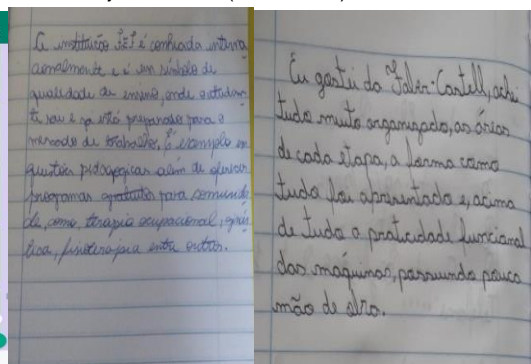 A instituição F.E.F é conhecida interna
cionalmente e é um símbolo de
qualidade de ensino, onde estudan
te sai e já está preparado para o
mercado de trabalho, É exemplo em
questões pedagógicas além de oferecer
programas gratuitos para comunida
de, como, terapia ocupacional,
tica, fisioterapia entre outros.
Eu gostei da Faber-Castell, achei
tudo muito organizado, as áreas
de cada etapa, a forma como
tudo foi apresentado e, acima
de tudo a praticidade funcional
das máquinas, possuindo pouca
mão de obra.